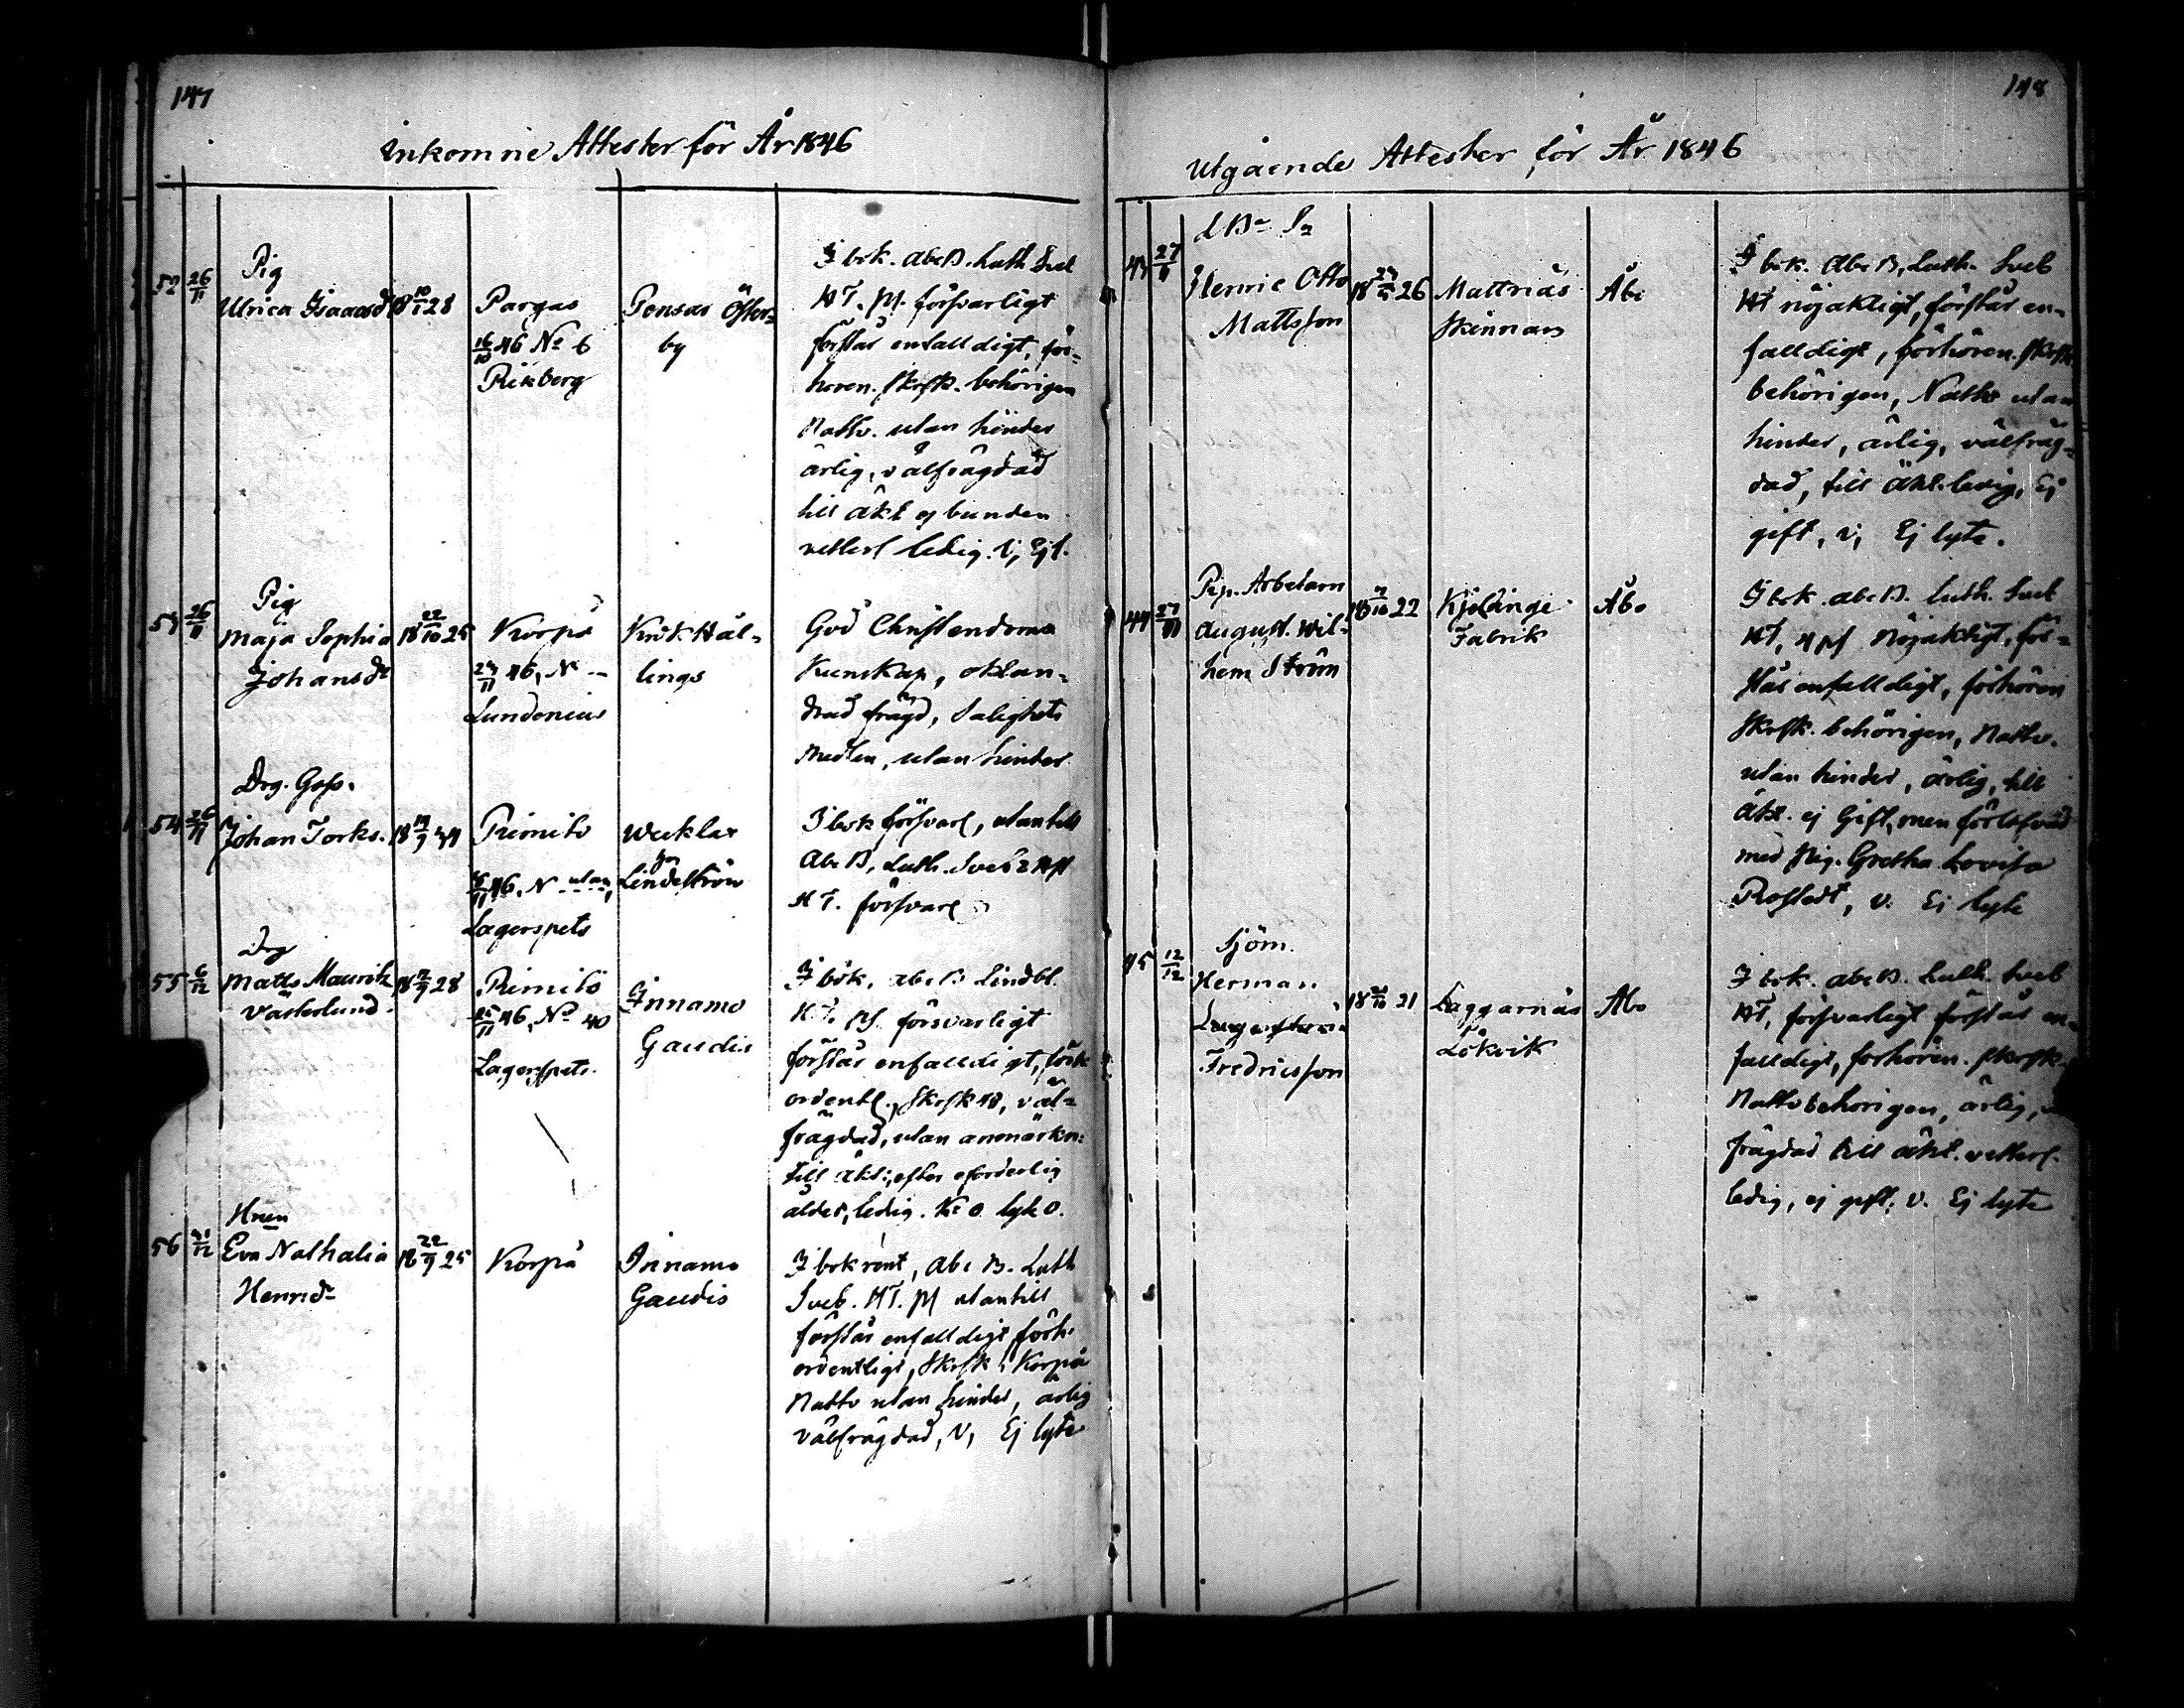 147
Inkomne Attester för År 1846
52 26/11
Pig
Ulrica Isaacsdr 18 10/1 28
Pargas
16/10 46 No 6
Rikberg
Pensar Öster-
by
I bok. Abc B. Luth Sveb
HT. ps. försvarligt
förstår enfalldigt, för-
hören. skrftk. behörigen
Nattv. utan hinder
ärlig, välfrägdad
till äkt ej bunden
vetterl ledig. v, Ej l.
53 26/11
Pig
Maja Sophia
Johansdr
18 22/10 25
Korpo
23/11 46, No --
Lundenius
Krok Häl-
lings
God Christendoms
Kunskap, oklan-
drad frägd, Salighets
Medlen, utan hinder
54 26/11
Drg. Goss.
Johan Torks. 18 19/9 34
Rimito
46, N utan,
Lagerspets
wecklax
Lindström
I bok försvarl, utantill
Abc B, Luth. Sveb 2 Hst
HT. försvarl
55 6/12
Drg
Matts Mauritz
Västerlund
28
Rimito
25/11 46, No 40
Lagerspets.
Innamo
Gaudis
I bok, abc B Lindbl.
HT. ps. försvarligt
förstår enfalldigt, förh
ordentl., skrftk, väl-
frägdad, utan anmärkn:
till äkt: efter eforderlig
ålder, ledig. Kr o. lyte o.
56 31/12
Hnen
Eva Nathalia
Henrdr
18 22/9 25
Korpo
Innamo
Gaudis
I bok rent, Abc B. Luth
Sveb. HT. ps utantill
förstår enfalldigt förh.
ordentligt, Skrftk i Korpo
Nattv utan hinder, ärlig
välfrägdad, V, Ej lyte
148
Utgående Attester för År 1846
43 27/11
Henric Otto
Mattsson
18 23/5 26
Mattnäs
Skinnars
Åbo
I bok. Abc B, Luth. Sveb
HT nöjaktigt, förstår en-
falldigt, förhören. skrftk
behörigen, Nattv utan
hinder, ärlig, välfräg-
dad, till äkt. ledig, Ej
gift, v, Ej lyte.
44 27/11
Rep. Arbetarn
August. Wil-
hem Ström
22
Kjölänge
Fabrik
Åbo
I bok. abc B. luth. Sveb
HT, ps Nöjaktigt, för-
står enfalldigt, förhören
Skrftk. behörigen, Nattv.
utan hinder, ärlig, till
äkt. ej Gift, men förlofvad
med Pig. Gretha Lovisa
Rostedt, v. Ej lyte
45 12/12
Sjöm.
Herman
Fredricsson
21
Laggarnäs
Lökvik
Åbo
I bok. abc B. Luth. Sveb
HT, försvarligt förstår en-
falldigt, förhören. skrftk.
Nattv behörigen, ärlig,
frägdad till äkt. vetterl.
ledig, ej gift. v. Ej lyte